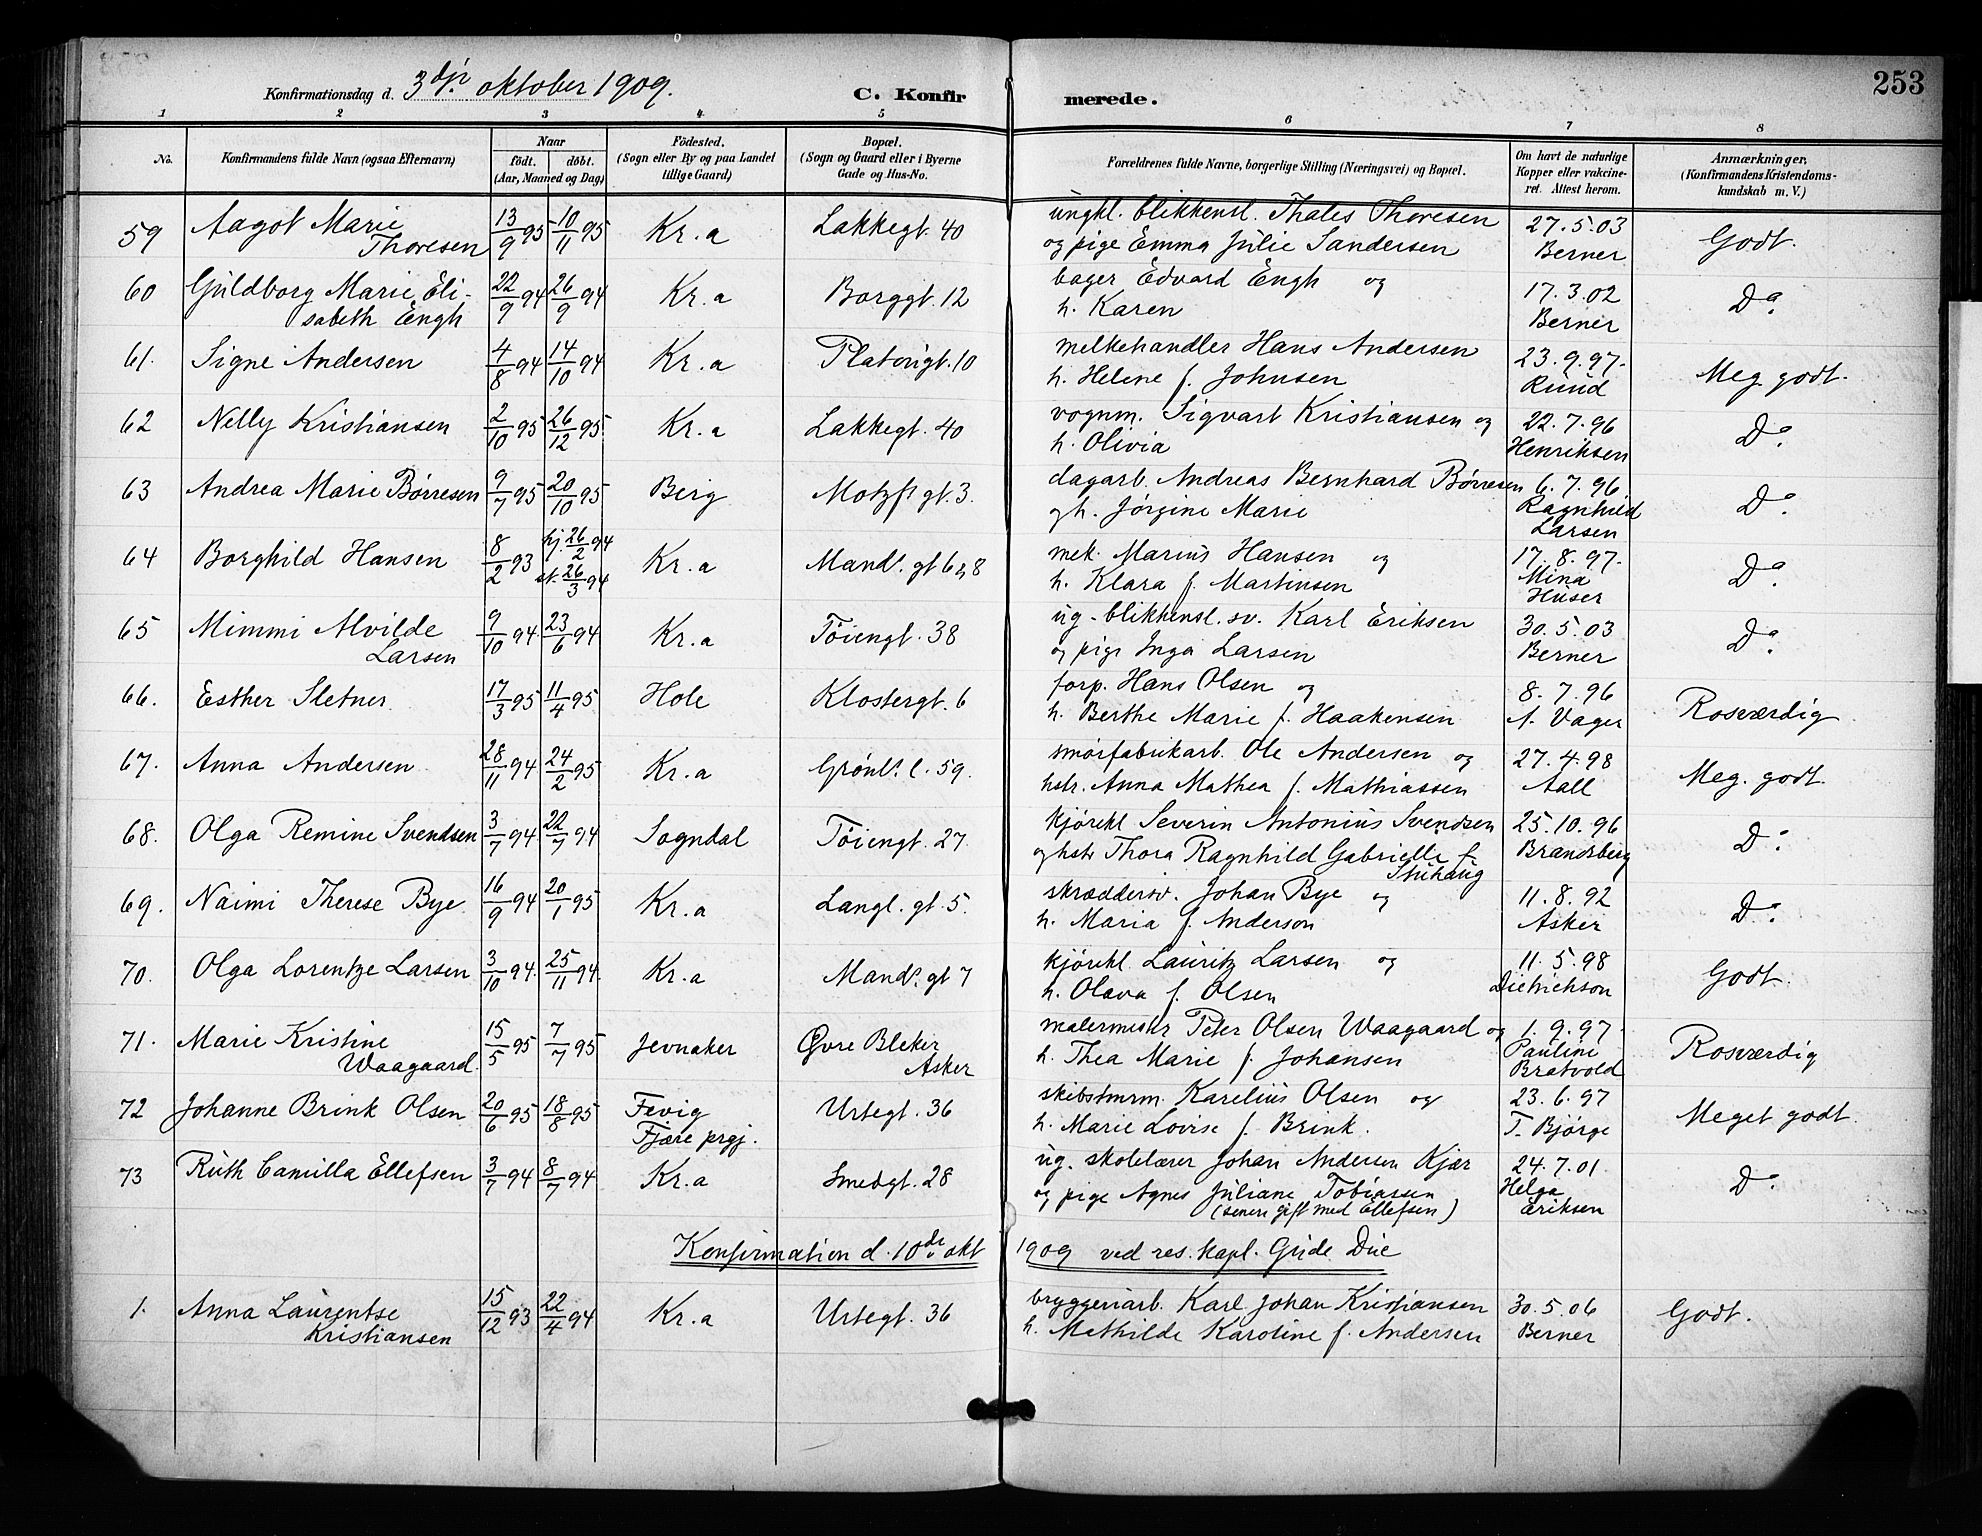 Konfirmationsdag d. 3dje oktober 1909.
C. Konfirmerede.
253
1 2 3 4 5 6 7 8
No. Konfirmandens fulde Navn (ogsaa Efternavn) Naar födt. döbt. (Aar, Maaned og Dag) Födested. (Sogn eller By og paa Landet tillige Gaard) Bopæl. (Sogn og Gaard eller i Byerne Gade og Hus-No. Forældrenes fulde Navne, borgerlige Stilling (Næringsvei) og Bopæl. Om havt de naturlige Kopper eller vakcineret. Attest herom. Anmærkninger. (Konfirmandens Kristendomskundskab m. V.)
59 Aagot Marie Thoresen 13/9 95 10/11 95 Kr.a Lakkegt. 40 ungkl. blikkensl. Thales Thoresen og pige Emma Julie Sandersen 27.5.03 Berner Godt.
60 Guldborg Marie Elisabeth Engh 22/9 94 26/9 94 Kr.a Borggt. 12 bager Edvard Engh og h. Karen 17.3.02 Berner Do.
61. Signe Andersen 4/8 94 14/10 94 Kr.a Platougt. 10 melkehandler Hans Andersen h. Helene f. Johnsen 23.9.97. Ruud Meg. godt.
62 Nelly Kristiansen 2/10 95 26/12 95 Kr.a Lakkegt. 40 vognm. Sigvart Kristiansen og h. Olivia 22.7.96 Henriksen Do.
63 Andrea Marie Børresen 9/7 95 20/10 95 Berg Motzf. gt. 3. dagarb. Andreas Bernhard Børresen og h. Jørgine Marie 6.7.96 Ragnhild Larsen Do.
64 Borghild Hansen 8/2 93 hj. 26/2 94 st. 26/3 94 Kr.a Mands. gt 6 & 8 mek. Marius Hansen og h. Klara f. Martinsen 17.8.97. Mina Huser Do.
65 Mimmi Alvilde Larsen 9/10 94 23/6 94 Kr.a Töiengt. 38 ug. blikkensl. sv. Karl Eriksen og pige Inga Larsen 30.5.03 Berner Do
66. Esther Sletner 17/3 95 11/4 95 Hole Klostergt. 6 forp. Hans Olsen og h. Berthe Marie f. Haakensen 8.7.96 A. Vager Rosværdig
67. Anna Andersen 28/11 94 24/2 95 Kr.a Grønl. l. 59. smörfabrikarb. Ole Andersen og hstr. Anna Mathea f. Mathiassen 27.4.98 Aall Meg. godt.
68. Olga Remine Svendsen 3/7 94 22/7 94 Sogndal Töiengt. 27. kjörekl Severin Antonius Svendsen og hstr Thora Ragnhild Gabrielle f. Stuhaug 25.10.96 Brandsberg Do.
69. Naimi Therese Bye 16/9 94 20/1 95 Kr.a Langl. gt. 5. skræddersv. Johan Bye og h. Maria f. Anderson 11.8.92 Asker Do.
70. Olga Lorentze Larsen 3/10 94. 25/11 94 Kr.a Mands. gt 7 kjörekl. Lauritz Larsen og h. Olava f. Olsen 11.5.98 Dietrichson Godt.
71. Marie Kristine Waagaard 15/5 95 7/7 95 Jevnaker Øvre Bleker Asker malermester Peter Olsen Waagaard og h. Thea Marie f. Johansen 1.9.97 Pauline Bratvold Rosværdig
72 Johanne Brink Olsen 20/6 95 18/8 95 Fevig Fjære prgj. Urtegt. 36 skibstmrm. Karelius Olsen og h. Marie Lovise f. Brink. 23.6.97 T. Bjørge Meget godt.
73 Ruth Camilla Ellefsen 3/7 94 8/7 94 Kr.a Smedgt. 28 ug. skolelærer Johan Andersen Kjær og pige Agnes Juliane Tobiassen (senere gift med Ellefsen) 24.7.01 Helga Eriksen Do.
Konfirmation d. 10de okt 1909 ved res. kapl. Gude Due
1. Anna Laurentse Kristiansen 15/12 93 22/4 94 Kr.a Urtegt. 36 bryggeriarb. Karl Johan Kristiansen h. Mathilde Karoline f. Andersen 30.5.06 Berner Godt.